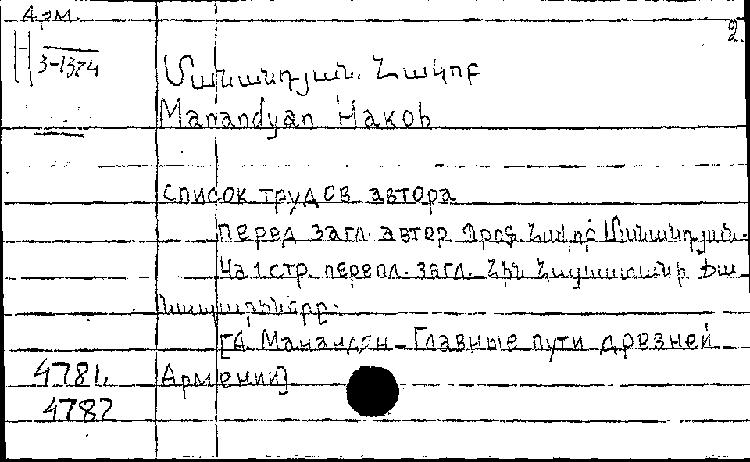 Арм.
2.
H 3-1324
Մանանդյան. Հակոբ
Manandyan Hакоb
список трудов автора
перед загл. автор Պրոֆ. Հակոբ Մանանդյան.
На 1 стр. перепл. загл. Հին Հայաստանի Ճա
նապարհները.
[А Манандян – Главные пути древней
4781. Армении]
4782